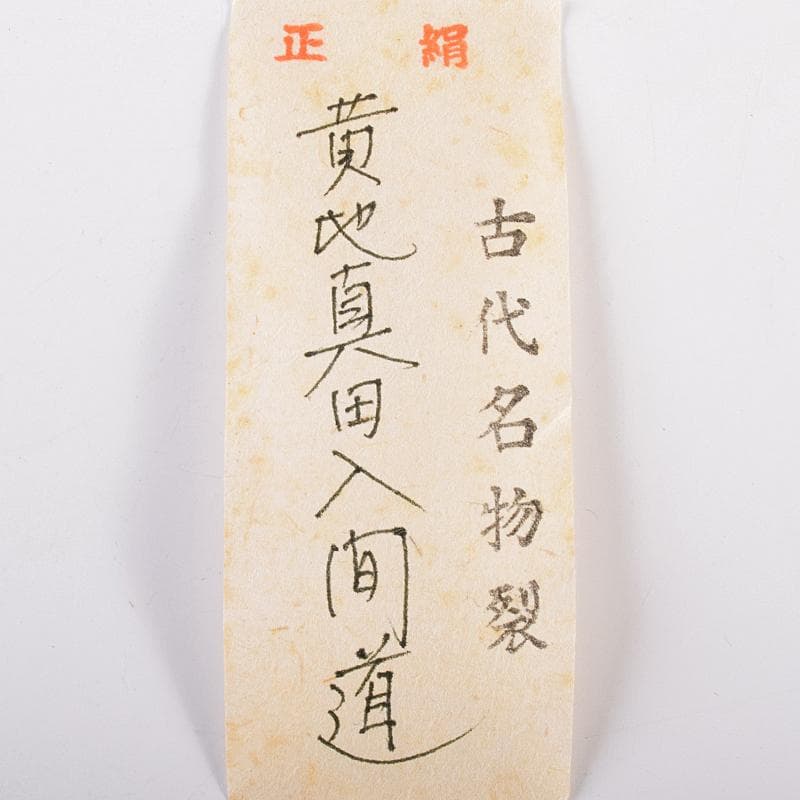 正絹
古代名物裂
黄地真田入間道